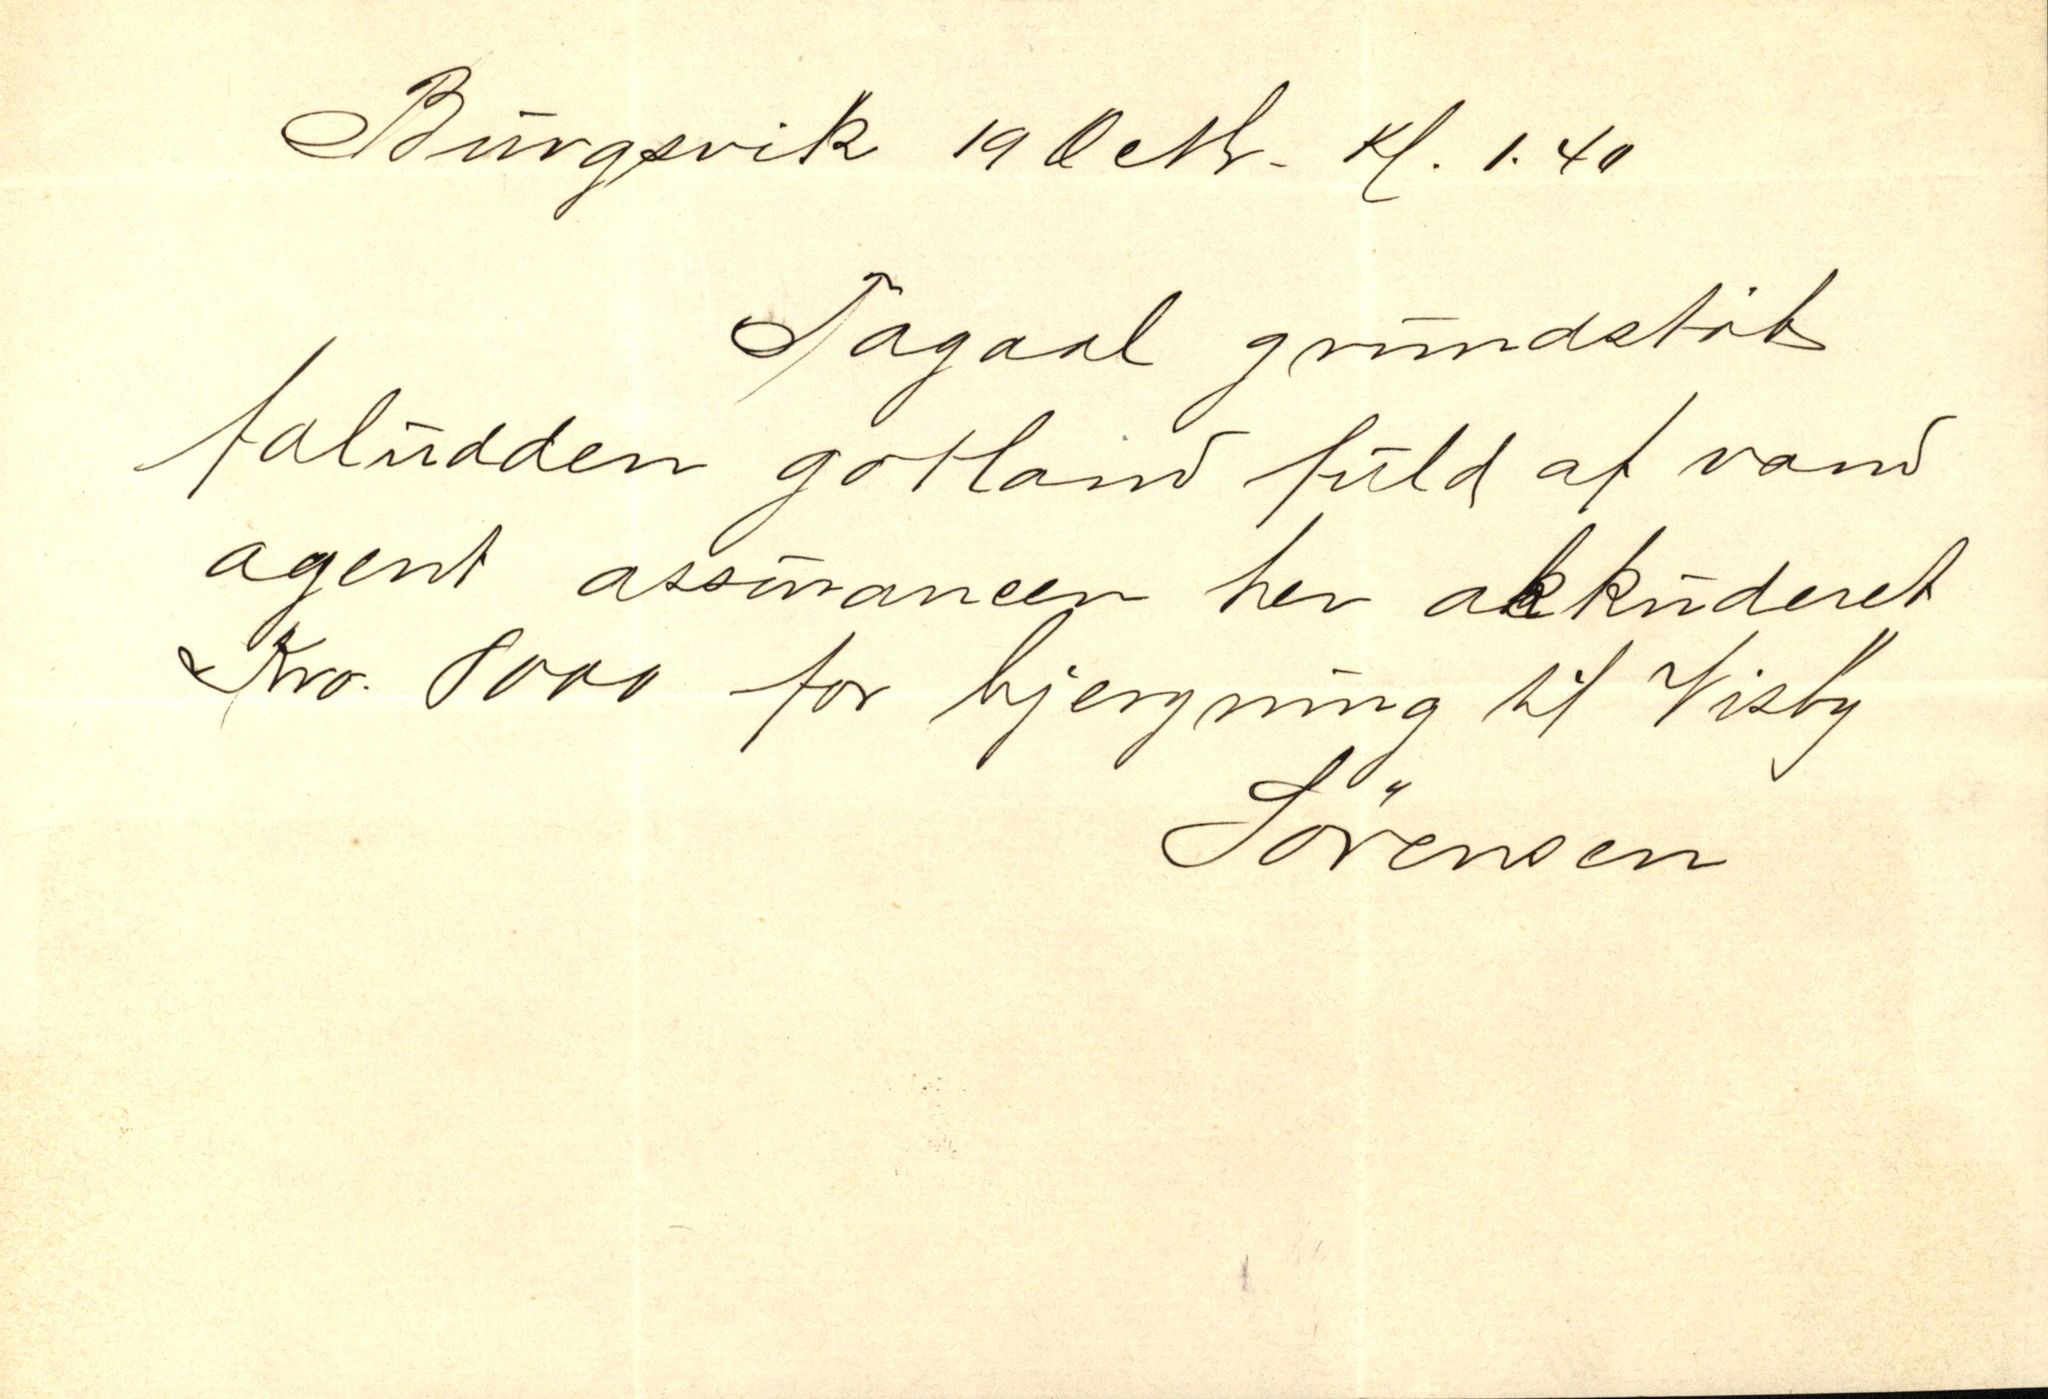 Burgsvik 19 Octbr. Kl. 1.40
Tagaal grundstöt
faludden gotland fuld af vand
agent assurancen her akkuderet
Kro. 8000 for bjergning til Visby
Sörensen